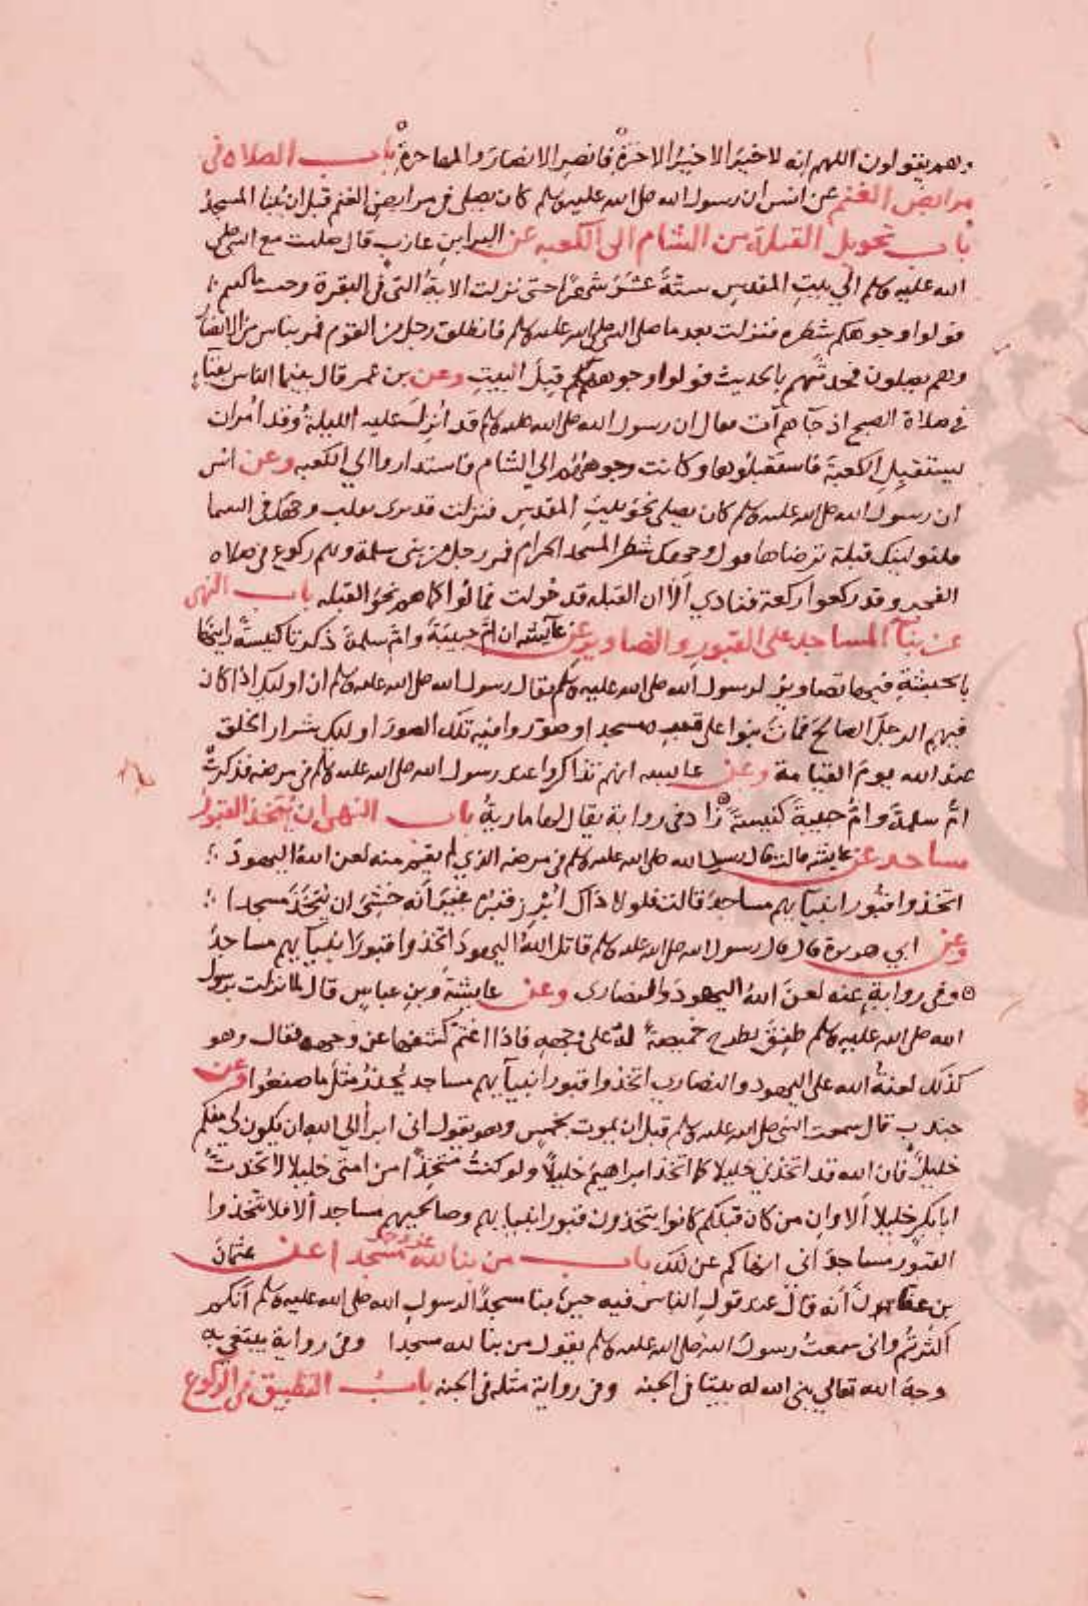 وهم يقولون اللهم انه لا خير الا خير الاخرة فانصر الانصار والمهاجرة باب الصلاة في
مرابض الغنم عن انس ان رسول الله صلى الله عليه وسلم كان يصلى في مرابض الغنم قبل ان يبنا المسجد
باب تحويل القبلة من الشام الى الكعبه عن البرا بن عازب قال صليت مع النبي صلى
الله عليه وسلم الي بيت المقدس ستة عشر شهرا حتى نزلت الاية التي في البقرة وحيث ما كنتم
فولوا وجوهكم شطره فنزلت بعد ما صلى النبي صلى الله عليه وسلم فانطلق رجل من القوم فمر بناس من الانصار
وهم يصلون فحدثهم بالحديث فولوا وجوههم قبل البيت وعن بن عمر قال بينما الناس بقباء
في صلاة الصبح اذ جآهم آت فقال ان رسول الله صلى الله عليه وسلم قد انزل عليه الليلة وقد امر ان
يستقبل الكعبة فاستقبلوها وكانت وجوههم الي الشام فاستداروا الي الكعبه وعن انس
ان رسول الله صلى الله عليه وسلم كان يصلي نحو بيت المقدس فنزلت قد نرى تقلب وجهك في السما
فلنولينك قبلة ترضاها فول وجهك شطر المسجد الحرام فمر رجل من بني سلمة وهم ركوع في صلاه
الفجر وقد ركعوا ركعة فنادي ألا ان القبله قد حولت فمالوا كما هم نحو القبله باب النهي
عن بنآ المساجد على القبور والتصاوير عن عآيشه ان ام حبيبة وام سلمة ذكرتا كنيسة راينها
بالحبشة فيها تصاوير لرسول الله صلى الله عليه وسلم فقال رسول الله صلى الله عليه وسلم ان اوليك اذا كان
فيهم الرجل الصالح فمات بنوا على قبره مسجدا وصوروا فيه تلك الصور اوليك شرار الخلق
عند الله يوم القيامة وعن عايشه انهم تذاكروا عند رسول الله صلى الله عليه وسلم في مرضه فذكرت
ام سلمة وام حبيبة كنيسة زاد في رواية يقال لها مارية باب النهي ان يتخذ القبور
مساجد عن عايشه قالت قال رسول الله صلى الله عليه وسلم في مرضه الذي لم يقم منه لعن الله اليهود
اتخذوا قبور انبيآيهم مساجد قالت فلولا ذاك ابرز قبره غير انه خشي ان يتخذ مسجدا
وعن ابي هريرة قال قال رسول الله صلى الله عليه وسلم قاتل الله اليهود اتخذوا قبور انبيآيهم مساجد
وفي رواية عنه لعن الله اليهود والنصارى وعن عايشة وبن عباس قال لما نزلت برسول
الله صلى الله عليه وسلم طفق يطرح خميصة له على وجهه فاذا اغتم كشفها عن وجهه فقال وهو
كذلك لعنة الله على اليهود والنصارى اتخذوا قبور انبيآيهم مساجد يحذر مثل ما صنعوا وعن
جندب قال سمعت النبي صلى الله عليه وسلم قبل ان يموت بخمس وهو يقول انى ابرا الي الله ان يكون لي منكم
خليل فان الله قد اتخذني خليلا كما اتخذ ابراهيم خليلا ولو كنت متخذا من امتي خليلا لاتخذت
ابا بكر خليلا ألا وان من كان قبلكم كانوا يتخذون قبور انبيايهم وصالحيهم مساجد ألا فلا تتخذوا
القبور مساجد انى انهاكم عن ذلك باب من بنا لله عز وجل مسجدا عن عثمان
بن عفان أنه قال عند قول الناس فيه حين بنا مسجد الرسول صلى الله عليه وسلم انكم
اكثرتم وانى سمعت رسول الله صلى الله عليه وسلم يقول من بنا لله مسجدا وفى رواية يبتغي به
وجه الله تعالي بنى الله له بيتا في الجنه وفى رواية مثله في الجنه باب التطبيق في الركوع